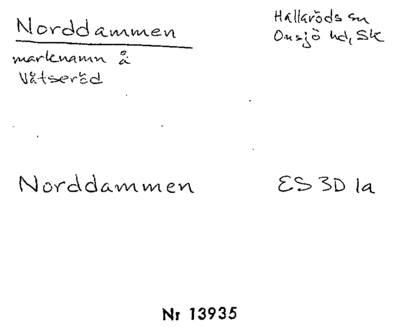 Norddammen
Hallaröds sn
Onsjö hd, Sk
marknamn å
Våtseröd
Norddammen
ES 3D 1a
Nr 13935